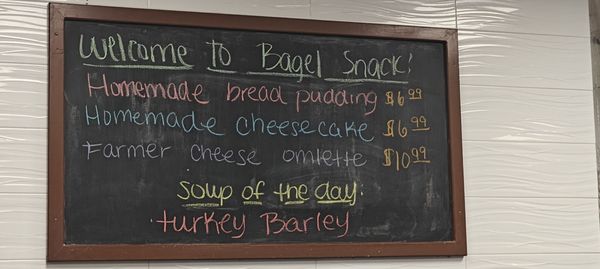 Welcome to Bagel Snack!
Homemade bread pudding $6.99
Homemade cheesecake $6.99
Farmer cheese omlette $10.99
Soup of the day:
turkey Barley